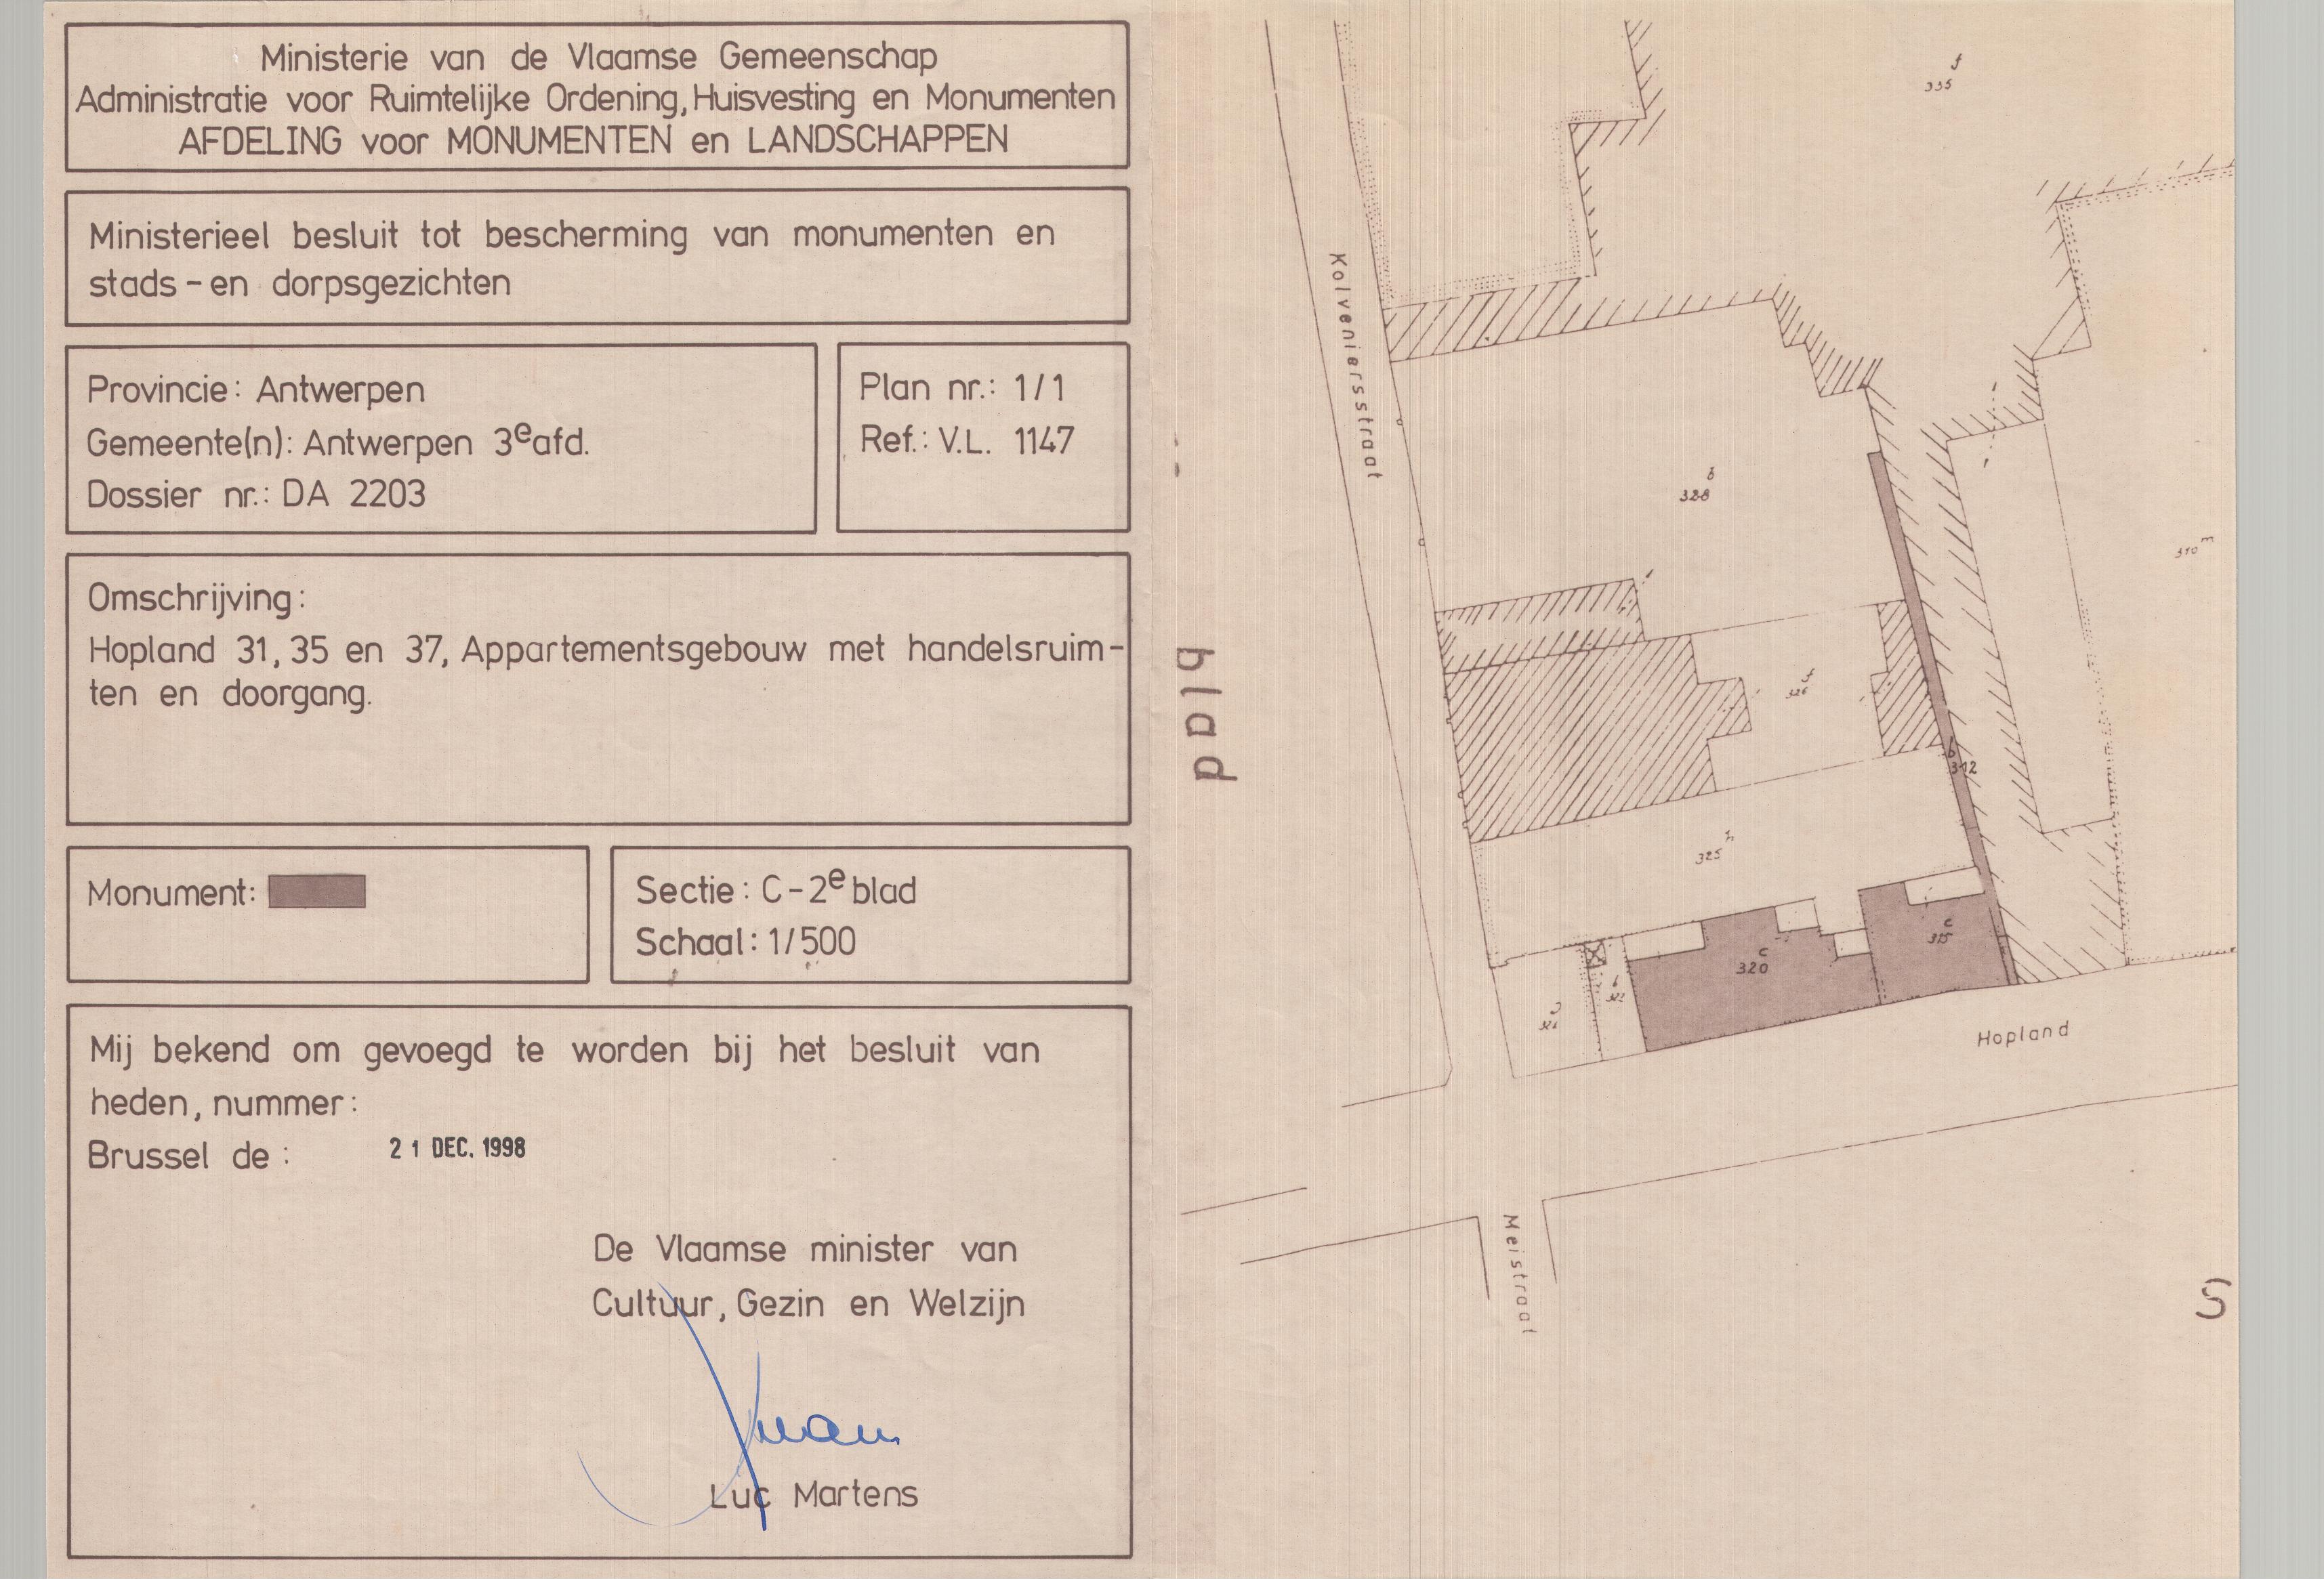 Ministerie van de Vlaamse Gemeenschap
Administratie voor Ruimtelijke Ordening, Huisvesting en Monumenten
AFDELING voor MONUMENTEN en LANDSCHAPPEN
Ministerieel besluit tot bescherming van monumenten en
stads-en dorpsgezichten
Provincie: Antwerpen
Gemeente(n): Antwerpen 3e afd.
Dossier nr.: DA 2203
Plan nr.: 1/1
Ref.: V.L. 1147
Omschrijving:
Hopland 31, 35 en 37, Appartementsgebouw met handelsruim-
ten en doorgang.
Monument:
Sectie: C-2e blad
Schaal: 1/500
Mij bekend om gevoegd te worden bij het besluit van
heden, nummer:
Brussel de: 21 DEC. 1998
De Vlaamse minister van
Cultuur, Gezin en Welzijn
Luc Martens
blad
Kolveniersstraat
335 f
328 b
310 m
326 f
b
312
325 h
c
315
c
320
Hopland
Meistraat
S